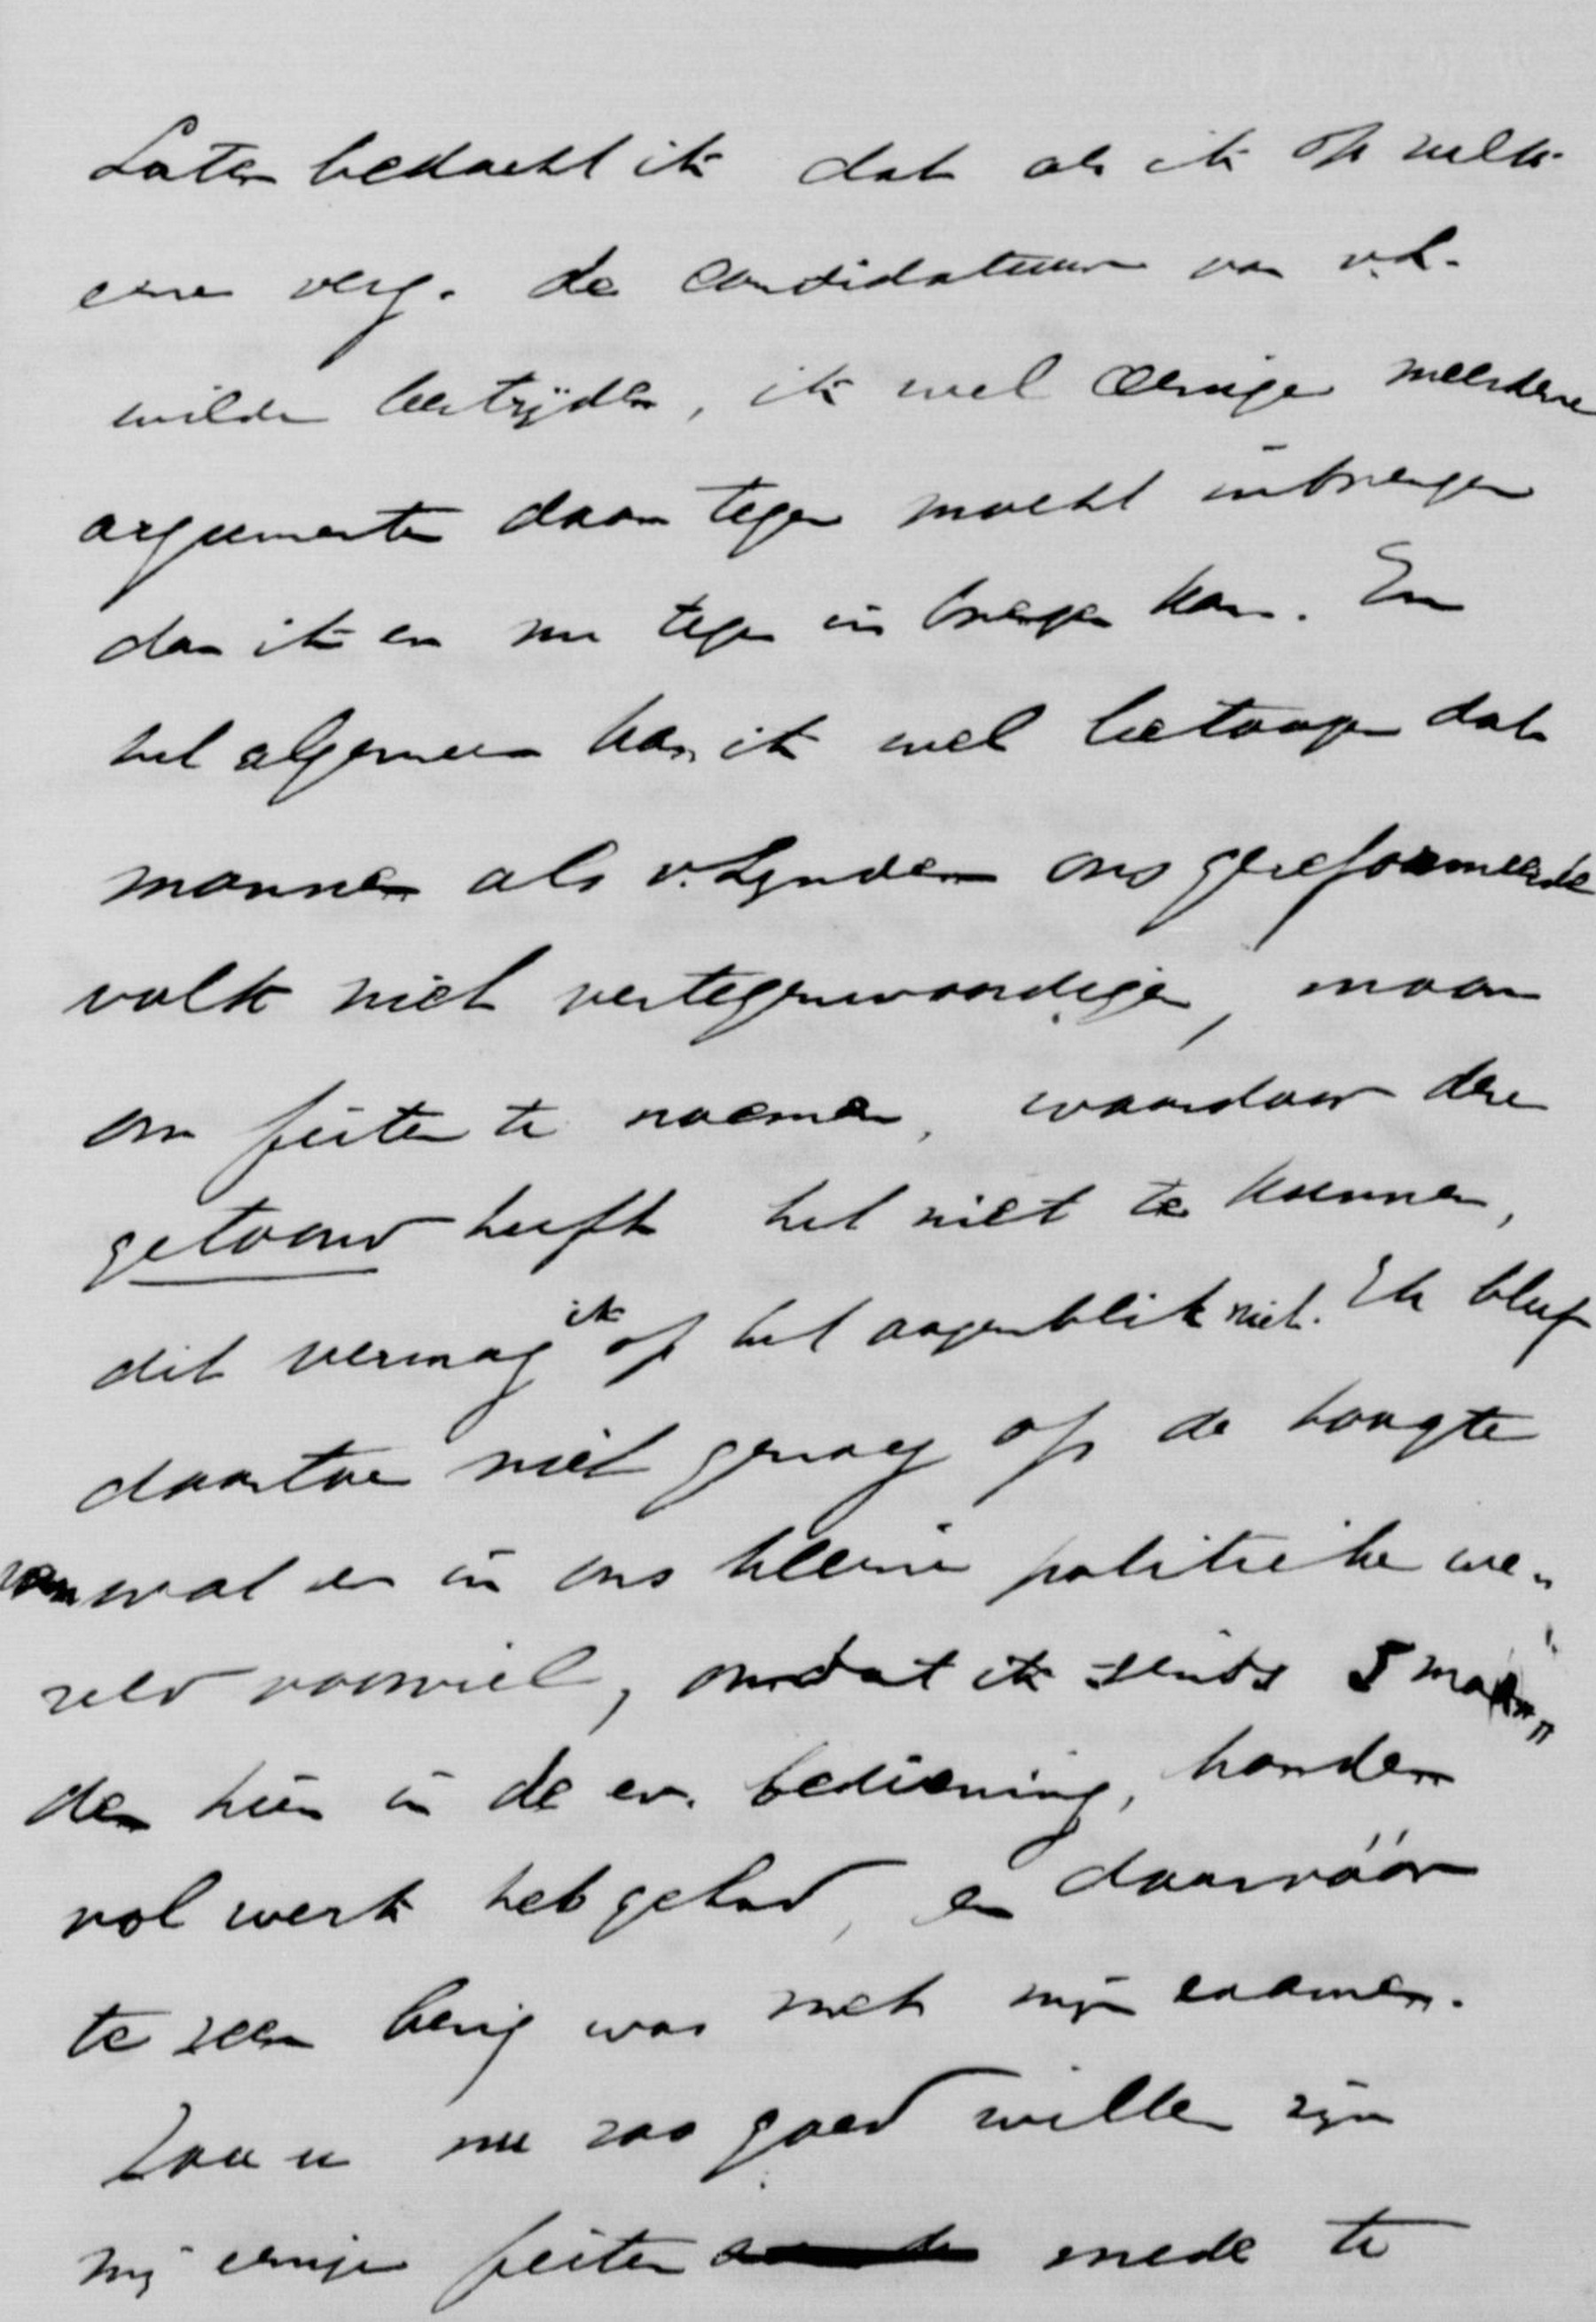 Later bedacht ik dat als ik op zulk
eene verg. de candidatuur van v.L.
wilde bestrijden, ik wel eenige meerdere
argumenten daar tegen mocht inbrengen
dan ik er nu tegen in brengen kan. In
het algemeen kan ik wel betoogen dat
mannen als v. Lynden ons gereformeerde
volk niet vertegenwoordigen, maar
om feiten te noemen, waardoor deze
getoond heeft het niet te kunnen,
dit vermag ik op het oogenblik niet. Ik bleef
daartoe niet genoeg op de hoogte
van wat er in ons kleine politieke we„
reld voorviel, omdat ik sinds 5 maan„
den hier in de ev. bediening, handen
vol werk heb gehad, en daarvóór
te zeer bezig was met mijn examen.
Zou u nu zoo goed willen zijn
mij eenige feiten mede te